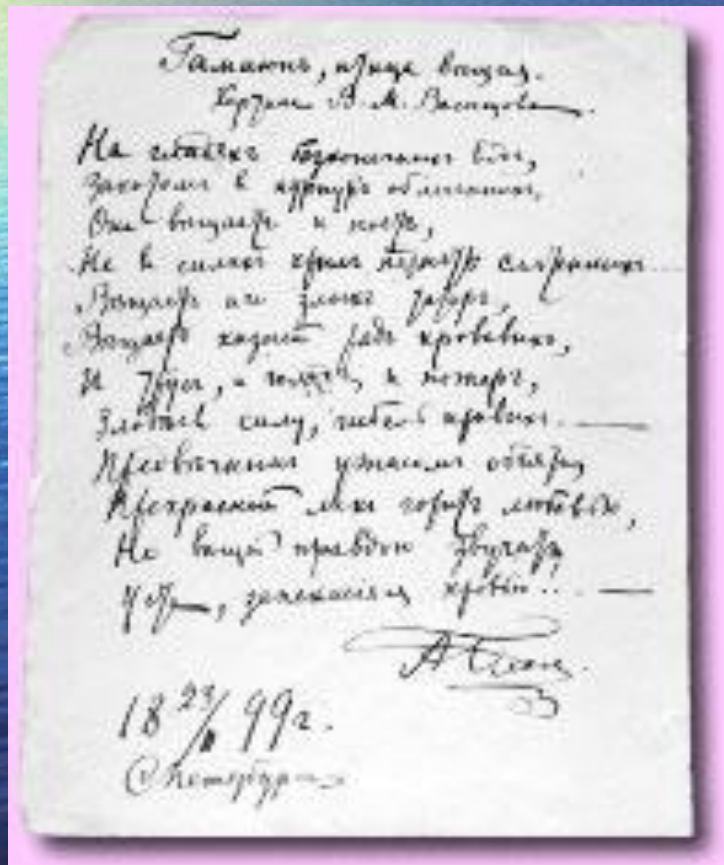 Гамаюнъ, птица вещая.
Картина В. М. Васнецова.
На гладяхъ безконечныхъ водъ,
Закатомъ в пурпуръ облеченныхъ,
Она вещаетъ и поетъ,
Не в силахъ крылъ поднять смятенныхъ...
Вещаетъ иго злыхъ татаръ,
Вещаетъ казней рядъ кровавыхъ,
И трусъ, и голодъ, и пожаръ,
Злодеевъ силу, гибель правыхъ. —
Предвечнымъ ужасомъ объятъ,
Прекрасный ликъ горитъ любовью,
Но вещей правдою звучатъ
Уста, запекшіяся кровью!.. —
А Блокъ.
18 23/II 99 г.
С. Петербургъ.